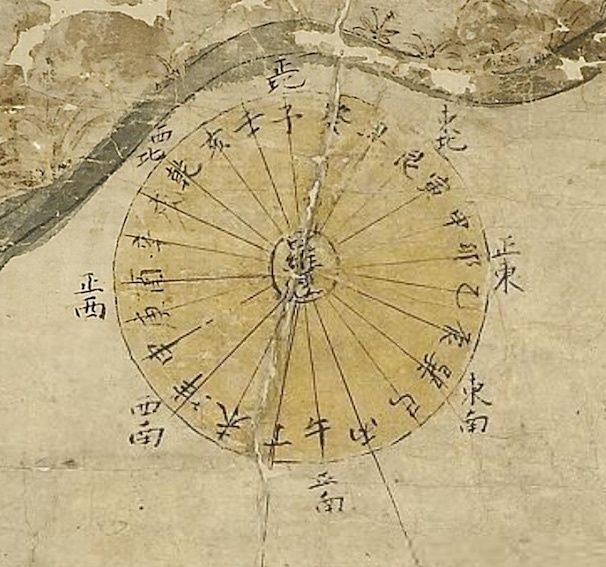 正北
東北
正東
東南
正南
西南
正西
西北
子
癸
丑
艮
寅
甲
卯
乙
辰
巽
巳
丙
午
丁
未
坤
申
庚
酉
辛
戌
乾
亥
壬
羅
經